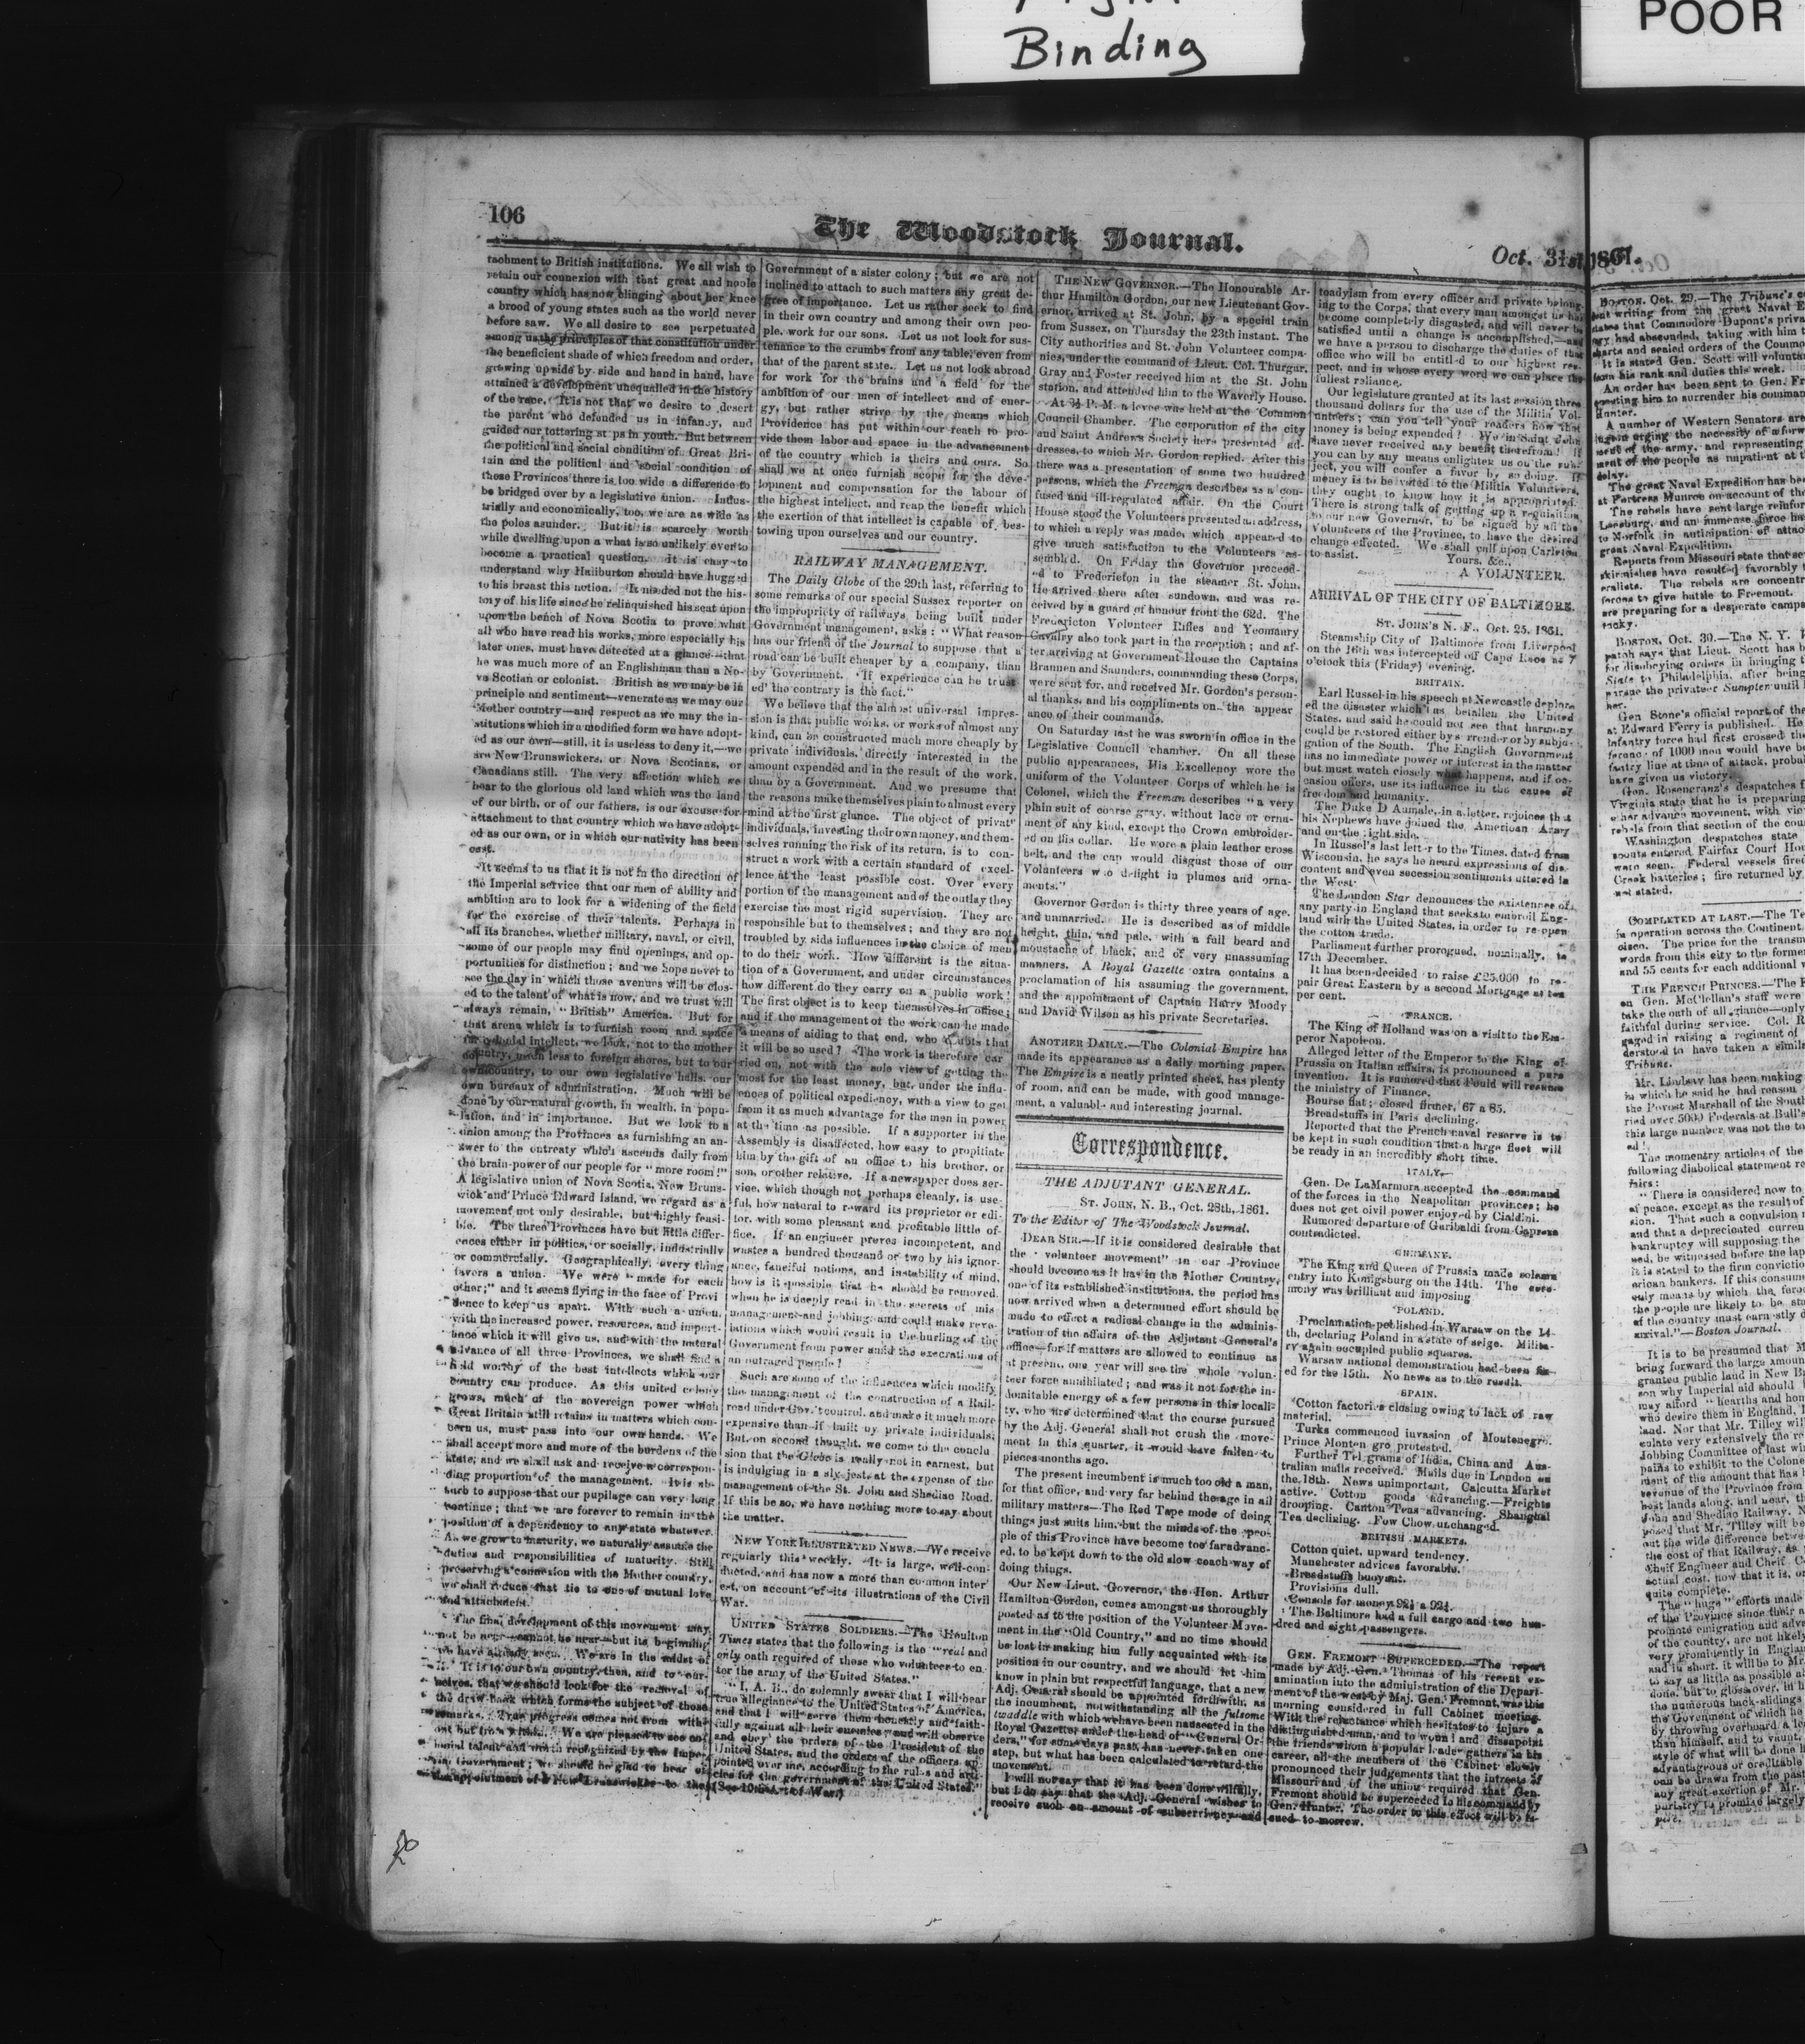 Binding
POOR
106
The Woodstock Journal.
Oct. 31st, 1861.
tachment to British institutions. We all wish to
retain our connexion with that great and noble
country which has now clinging about her knee
a brood of young states such as the world never
before saw. We all desire to see perpetuated
among us the principles of that constitution under
the beneficient shade of which freedom and order,
growing up side by side and hand in hand, have
attained a development unequalled in the history
of the race. It is not that we desire to desert
the parent who defended us in infancy, and
guided our tottering st ps in youth. But between
the political and social condition of Great Bri-
tain and the political and social condition of
these Provinces there is too wide a difference to
be bridged over by a legislative union. Indus-
trially and economically, too, we are as wide as
the poles asunder. But it is scarcely worth
while dwelling upon a what is so unlikely ever to
become a practical question. It is easy to
understand why Haliburton should have hugged
to his breast this notion. It needed not the his-
tory of his life since he relinquished his seat upon
upon the bench of Nova Scotia to prove what
all who have read his works, more especially his
later ones, must have detected at a glance—that
he was much more of an Englishman than a No-
va Scotian or colonist. British as we may be in
principle and sentiment—venerate as we may our
Mother country—and respect as we may the in-
stitutions which in a modified form we have adopt-
ed as our own—still, it is useless to deny it,—we
are New Brunswickers, or Nova Scotians, or
Canadians still. The very affection which we
bear to the glorious old land which was the land
of our birth, or of our fathers, is our excuse for
attachment to that country which we have adopt-
ed as our own, or in which our nativity has been
cast.
It seems to us that it is not in the direction of
the Imperial service that our men of ability and
ambition are to look for a widening of the field
for the exercise of their talents. Perhaps in
all its branches, whether military, naval, or civil,
some of our people may find openings, and op-
portunities for distinction; and we hope never to
see the day in which those avenues will be clos-
ed to the talent of what is now, and we trust will
always remain, "British" America. But for
that arena which is to furnish room and space
for colonial intellect, we look, not to the mother
country, much less to foreign shores, but to our
own country, to our own legislative halls, our
own bureaux of administration. Much will be
done by our natural growth, in wealth, in popu-
lation, and in importance. But we look to a
union among the Provinces as furnishing an an-
swer to the entreaty which ascends daily from
the brain-power of our people for "more room!"
A legislative union of Nova Scotia, New Bruns-
wick and Prince Edward Island, we regard as a
movement not only desirable, but highly feasi-
ble. The three Provinces have but little differ-
ences either in politics, or socially, industrially
or commercially. Geographically, every thing
favors a union. We were "made for each
other;" and it seems flying in the face of Provi
dence to keep us apart. With such a union,
with the increased power, resources, and import-
ance which it will give us, and with the natural
advance of all three Provinces, we shall find a
field worthy of the best intellects which our
country can produce. As this united colony
grows, much of the sovereign power which
Great Britain still retains in matters which con-
cern us, must pass into our own hands. We
shall accept more and more of the burdens of the
state, and we shall ask and receive a correspon-
ding proportion of the management. It is ab-
surd to suppose that our pupilage can very long
continue; that we are forever to remain in the
position of a dependency to any state whatever.
As we grow to maturity, we naturally assume the
duties and responsibilities of maturity. Still
preserving a connexion with the Mother country,
we shall reduce that tie to one of mutual love
and attachment.
The final development of this movement may
not be near—cannot be near—but its beginning
we have already seen. We are in the midst of
it. It is to our own country, then, and to our-
selves, that we should look for the removal of
the draw-back which forms the subject of those
remarks. True progress comes not from with-
out but from within. We are pleased to see col-
onial talent and worth recognized by the Imper-
ial Government; we should be glad to hear of
the appointment of a New Brunswicker to the
Government of a sister colony; but we are not
inclined to attach to such matters any great de-
gree of importance. Let us rather seek to find
in their own country and among their own peo-
ple, work for our sons. Let us not look for sus-
tenance to the crumbs from any table, even from
that of the parent state. Let us not look abroad
for work for the brains and a field for the
ambition of our men of intellect and of ener-
gy, but rather strive by the means which
Providence has put within our reach to pro-
vide them labor and space in the advancement
of the country which is theirs and ours. So
shall we at once furnish scope for the deve-
lopment and compensation for the labour of
the highest intellect, and reap the benefit which
the exertion of that intellect is capable of bes-
towing upon ourselves and our country.
RAILWAY MANAGEMENT.
The Daily Globe of the 29th last, referring to
some remarks of our special Sussex reporter on
the impropriety of railways being built under
Government management, asks: "What reason
has our friend of the Journal to suppose that a
road can be built cheaper by a company, than
by Government. If experience can be trust-
ed the contrary is the fact."
We believe that the almost universal impres-
sion is that public works, or works of almost any
kind, can be constructed much more cheaply by
private individuals, directly interested in the
amount expended and in the result of the work,
than by a Government. And we presume that
the reasons make themselves plain to almost every
mind at the first glance. The object of privat
individuals, investing their own money, and them-
selves running the risk of its return, is to con-
struct a work with a certain standard of excel-
lence at the least possible cost. Over every
portion of the management and of the outlay they
exercise the most rigid supervision. They are
responsible but to themselves; and they are not
troubled by side influences in the choice of men
to do their work. How different is the situa-
tion of a Government, and under circumstances
how different do they carry on a public work!
The first object is to keep themselves in office;
and if the management of the work can be made
a means of aiding to that end, who doubts that
it will be so used? The work is therefore car
ried on, not with the sole view of getting the
most for the least money, but, under the influ-
ences of political expediency, with a view to get
from it as much advantage for the men in power
at the time as possible. If a supporter in the
Assembly is disaffected, how easy to propitiate
him by the gift of an office to his brother, or
son, or other relative. If a newspaper does ser-
vice, which though not perhaps cleanly, is use-
ful, how natural to reward its proprietor or edi-
tor, with some pleasant and profitable little of-
fice. If an engineer proves incompetent, and
wastes a hundred thousand or two by his ignor-
ance, fanciful notions, and instability of mind,
how is it possible that he should be removed
when he is deeply read in the secrets of mis
management and jobbing, and could make reve-
lations which would result in the hurling of the
Government from power amid the execrations of
an outraged people!
Such are some of the influences which modify
the management of the construction of a Rail-
road under Gov.'t control, and make it much more
expensive than if built by private individuals.
But, on second thought, we come to the conclu
sion that the Globe is really not in earnest, but
is indulging in a sly jest at the expense of the
management of the St. John and Shediac Road.
If this be so, we have nothing more to say about
the matter.
NEW YORK ILLUSTRATED NEWS.—We receive
regularly this weekly. It is large, well-con-
ducted, and has now a more than common inter
est, on account of its illustrations of the Civil
War.
UNITED STATES SOLDIERS.—The Houlton
Times states that the following is the "real and
only oath required of those who volunteer to en-
ter the army of the United States."
"I, A. B., do solemnly swear that I will bear
true allegiance to the United States of America,
and that I will serve them honestly and faith-
fully against all their enemies; and will observe
and obey the orders of the President of the
United States, and the orders of the officers ap-
pointed over me, according to the rules and arti-
cles for the government of the United States."
(See 10th Art. of War.)
THE NEW GOVERNOR.—The Honourable Ar-
thur Hamilton Gordon, our new Lieutenant Gov-
ernor, arrived at St. John, by a special train
from Sussex, on Thursday the 23th instant. The
City authorities and St. John Volunteer compa-
nies, under the command of Lieut. Col. Thurgar,
Gray and Foster received him at the St. John
station, and attended him to the Waverly House.
At 3½ P. M. a levee was held at the Common
Council Chamber. The corporation of the city
and Saint Andrews Society here presented ad-
dresses, to which Mr. Gordon replied. After this
there was a presentation of some two hundred
persons, which the Freeman describes as a con-
fused and ill-regulated affair. On the Court
House stood the Volunteers presented an address,
to which a reply was made, which appeared to
give much satisfaction to the Volunteers as-
sembled. On Friday the Governor proceed-
ed to Fredericton in the steamer St. John.
He arrived there after sundown, and was re-
ceived by a guard of honour from the 62d. The
Fredericton Volunteer Rifles and Yeomanry
Cavalry also took part in the reception; and af-
ter arriving at Government House the Captains
Brannen and Saunders, commanding these Corps,
were sent for, and received Mr. Gordon's person-
al thanks, and his compliments on the appear
ance of their commands.
On Saturday last he was sworn in office in the
Legislative Council chamber. On all these
public appearances, His Excellency wore the
uniform of the Volunteer Corps of which he is
Colonel, which the Freeman describes "a very
plain suit of coarse gray, without lace or orna-
ment of any kind, except the Crown embroider-
ed on his collar. He wore a plain leather cross
belt, and the cap would disgust those of our
Volunteers who delight in plumes and orna-
ments."
Governor Gordon is thirty three years of age,
and unmarried. He is described as of middle
height, thin, and pale, with a full beard and
moustache of black, and of very unassuming
manners. A Royal Gazette extra contains a
proclamation of his assuming the government,
and the appointment of Captain Harry Moody
and David Wilson as his private Secretaries.
ANOTHER DAILY.—The Colonial Empire has
made its appearance as a daily morning paper.
The Empire is a neatly printed sheet, has plenty
of room, and can be made, with good manage-
ment, a valuable and interesting journal.
Correspondence.
THE ADJUTANT GENERAL.
ST. JOHN, N. B., Oct. 28th, 1861.
To the Editor of The Woodstock Journal.
DEAR SIR.—If it is considered desirable that
the "volunteer movement" in our Province
should become as it has in the Mother Country,
one of its established institutions, the period has
now arrived when a determined effort should be
made to effect a radical change in the adminis-
tration of the affairs of the Adjutant General's
office—for if matters are allowed to continue as
at present, one year will see the whole volun-
teer force annihilated; and was it not for the in-
domitable energy of a few persons in this locali-
ty, who are determined that the course pursued
by the Adj. General shall not crush the move-
ment in this quarter, it would have fallen to
pieces months ago.
The present incumbent is much too old a man,
for that office, and very far behind the age in all
military matters—The Red Tape mode of doing
things just suits him, but the minds of the peo-
ple of this Province have become too far advanc-
ed, to be kept down to the old slow coach way of
doing things.
Our New Lieut. Governor, the Hon. Arthur
Hamilton Gordon, comes amongst us thoroughly
posted as to the position of the Volunteer Move-
ment in the "Old Country," and no time should
be lost in making him fully acquainted with its
position in our country, and we should let him
know in plain but respectful language, that a new
Adj. General should be appointed forthwith, as
the incumbent, notwithstanding all the fulsome
twaddle with which we have been nauseated in the
Royal Gazette, under the head of "General Or-
ders," for some days past, has never taken one
step, but what has been calculated to retard the
movement.
I will not say that it has been done wilfully,
but I do say that the Adj. General wishes to
receive such an amount of subserviency and
toadyism from every officer and private belong-
ing to the Corps, that every man amongst us has
become completely disgusted, and will never be
satisfied until a change is accomplished,—and
we have a person to discharge the duties of that
office who will be entitled to our highest res-
pect, and in whose every word we can place the
fullest reliance.
Our legislature granted at its last session three
thousand dollars for the use of the Militia Vol-
unteers; can you tell your readers how that
money is being expended? We in Saint John
have never received any benefit therefrom! If
you can by any means enlighten us on the sub-
ject, you will confer a favor by so doing. If
money is to be voted to the Militia Volunteers,
they ought to know how it is appropriated.
There is strong talk of getting up a requisition
to our new Governor, to be signed by all the
Volunteers of the Province, to have the desired
change effected. We shall call upon Carleton
to assist.
Yours, &c.,
A VOLUNTEER.
ARRIVAL OF THE CITY OF BALTIMORE.
ST. JOHN'S N. F., Oct. 25, 1861.
Steamship City of Baltimore from Liverpool
on the 16th was intercepted off Cape Race at 7
o'clock this (Friday) evening.
BRITAIN.
Earl Russel in his speech at Newcastle deplor-
ed the disaster which has befallen the United
States, and said he could not see that harmony
could be restored either by surrender or by subju-
gation of the South. The English Government
has no immediate power or interest in the matter
but must watch closely what happens, and if oc-
casion offers, use its influence in the cause of
freedom and humanity.
The Duke D Aumale, in a letter, rejoices that
his Nephews have joined the American Army
and on the right side.
In Russel's last letter to the Times, dated from
Wisconsin, he says he heard expressions of dis-
content and even secession sentiments uttered in
the West.
The London Star denounces the existence of
any party in England that seeks to embroil Eng-
land with the United States, in order to re open
the cotton trade.
Parliament further prorogued, nominally, to
17th December.
It has been decided to raise £25,000 to re-
pair Great Eastern by a second Mortgage at ten
per cent.
FRANCE.
The King of Holland was on a visit to the Em-
peror Napoleon.
Alleged letter of the Emperor to the King of
Prussia on Italian affairs, is pronounced a pure
invention. It is rumored that Fould will resume
the ministry of Finance.
Bourse flat; closed firmer, 67 a 85.
Breadstuffs in Paris declining.
Reported that the French naval reserve is to
be kept in such condition that a large fleet will
be ready in an incredibly short time.
ITALY.
Gen. De LaMarmora accepted the command
of the forces in the Neapolitan provinces; he
does not get civil power enjoyed by Cialdini.
Rumored departure of Garibaldi from Caprera
contradicted.
GERMANY.
The King and Queen of Prussia made solemn
entry into Konigsburg on the 14th. The cere-
mony was brilliant and imposing
POLAND.
Proclamation published in Warsaw on the 14-
th, declaring Poland in a state of seige. Milita-
ry again occupied public squares.
Warsaw national demonstration had been fix-
ed for the 15th. No news as to the result.
SPAIN.
Cotton factories closing owing to lack of raw
material.
Turks commenced invasion of Montenegro.
Prince Monten gro protested.
Further Telegrams of India, China and Aus-
tralian mails received. Mails due in London on
the 18th. News unimportant. Calcutta Market
active. Cotton goods advancing.—Freights
drooping. Canton Teas advancing. Shanghai
Tea declining. Fow Chow unchanged.
BRITISH MARKETS.
Cotton quiet, upward tendency.
Manchester advices favorable.
Breadstuffs buoyant.
Provisions dull.
Consols for money 92¼ a 92½.
The Baltimore had a full cargo and two hun-
dred and eight passengers.
GEN. FREMONT SUPERCEDED.—The report
made by Adj. Gen. Thomas of his recent ex-
amination into the administration of the Depart-
ment of the west by Maj. Gen. Fremont, was this
morning considered in full Cabinet meeting.
With the reluctance which hesitates to injure a
distinguished man, and to wound and dissapoint
the friends whom a popular leader gathers in his
career, all the members of the Cabinet slowly
pronounced their judgements that the intrests of
Missouri and of the union required that Gen.
Fremont should be superceded in his command by
Gen. Hunter. The order to this effect will be is-
sued to-morrow.
BOSTON, Oct. 29.—The Tribune's
writing from the great Naval
states that Commodore Dupont's priva
had absconded, taking with him
charts and sealed orders of the Commo
It is stated Gen. Scott will volunta
from his rank and duties this week.
An order has been sent to Gen. Fr
him to surrender his comman
Hunter.
A number of Western Senators are
urging the necessity of a forw
of the army, and representing
ment of the people as impatient at t
delay.
The great Naval Expedition has be
at Fortress Munroe on account of the
The rebels have sent large reinfor
Leesburg, and an immense force ha
to Norfolk in anticipation of attac
great Naval Expedition.
Reports from Missouri state that se
skirmishes have resulted favorably
The rebels are concentr
forces to give battle to Freemont.
are preparing for a desperate campa
BOSTON, Oct. 30.—The N. Y.
patch says that Lieut. Scott has b
for disobeying orders in bringing
State to Philadelphia, after being
pursue the privateer Sumpter until
her.
Gen Stone's official report of the
at Edward Ferry is published. He
infantry force had first crossed the
of 1000 men would have be
line at time of attack, probab
have given us victory.
Gen. Rosencranz's despatches f
Virginia state that he is preparing
advance movement, with vic
rebels from that section of the cou
Washington despatches state
scouts entered Fairfax Court Hou
were seen. Federal vessels fired
Creek batteries; fire returned by
not stated.
COMPLETED AT LAST.—The Te
in operation across the Continent
The price for the transm
words from this city to the former
and 55 cents for each additional w
THE FRENCH PRINCES.—The F
on Gen. McClellan's staff were
take the oath of allegiance—only
faithful during service. Col. R
gaged in raising a regiment of
derstood to have taken a simila
Tribune.
Mr. Lindsay has been making
in which he said he had reason
the Povost Marshall of the South
ried over 5000 Federals at Bull's
this large number was not the to
ed!
The momentry articles of the
following diabolical statement re
"There is considered now to
of peace, except as the result of
sion. That such a convulsion
and that a depreciated curren
bankruptcy will supposing the
be witnessed before the lap
it is stated to the firm convictio
erican bankers. If this consum
only means by which the feroc
the people are likely to be sta
of the country must earnestly d
arrival."—Boston Journal.
It is to be presumed that M
bring forward the large amoun
granted public land in New Br
son why Imperial aid should
may afford "hearths and hom
who desire them in England,
land. Nor that Mr. Tilley will
very extensively the re
Jobbing Committee of last win
pains to exhibit to the Colone
ment of the amount that has
revenue of the Province from
best lands along, and near, th
John and Shediac Railway. N
posed that Mr. Tilley will be
out the wide difference betwe
the cost of that Railway, as
Cheif Engineer and Cheif
actual cost, now that it is, or
quite complete.
The "huge" efforts made
of the Province since their a
promote emigration and adve
of the country, are not likely
very prominently in England
and in short, it will be to Mr.
to say as little as possible a
done, but to gloss over, in h
the numerous back-slidings
the Government of which he
By throwing overboard a lo
than himself, and to vaunt,
style of what will be done
advantagrous or creditable
can be drawn from the past
any great exertion of Mr.
to promise largely